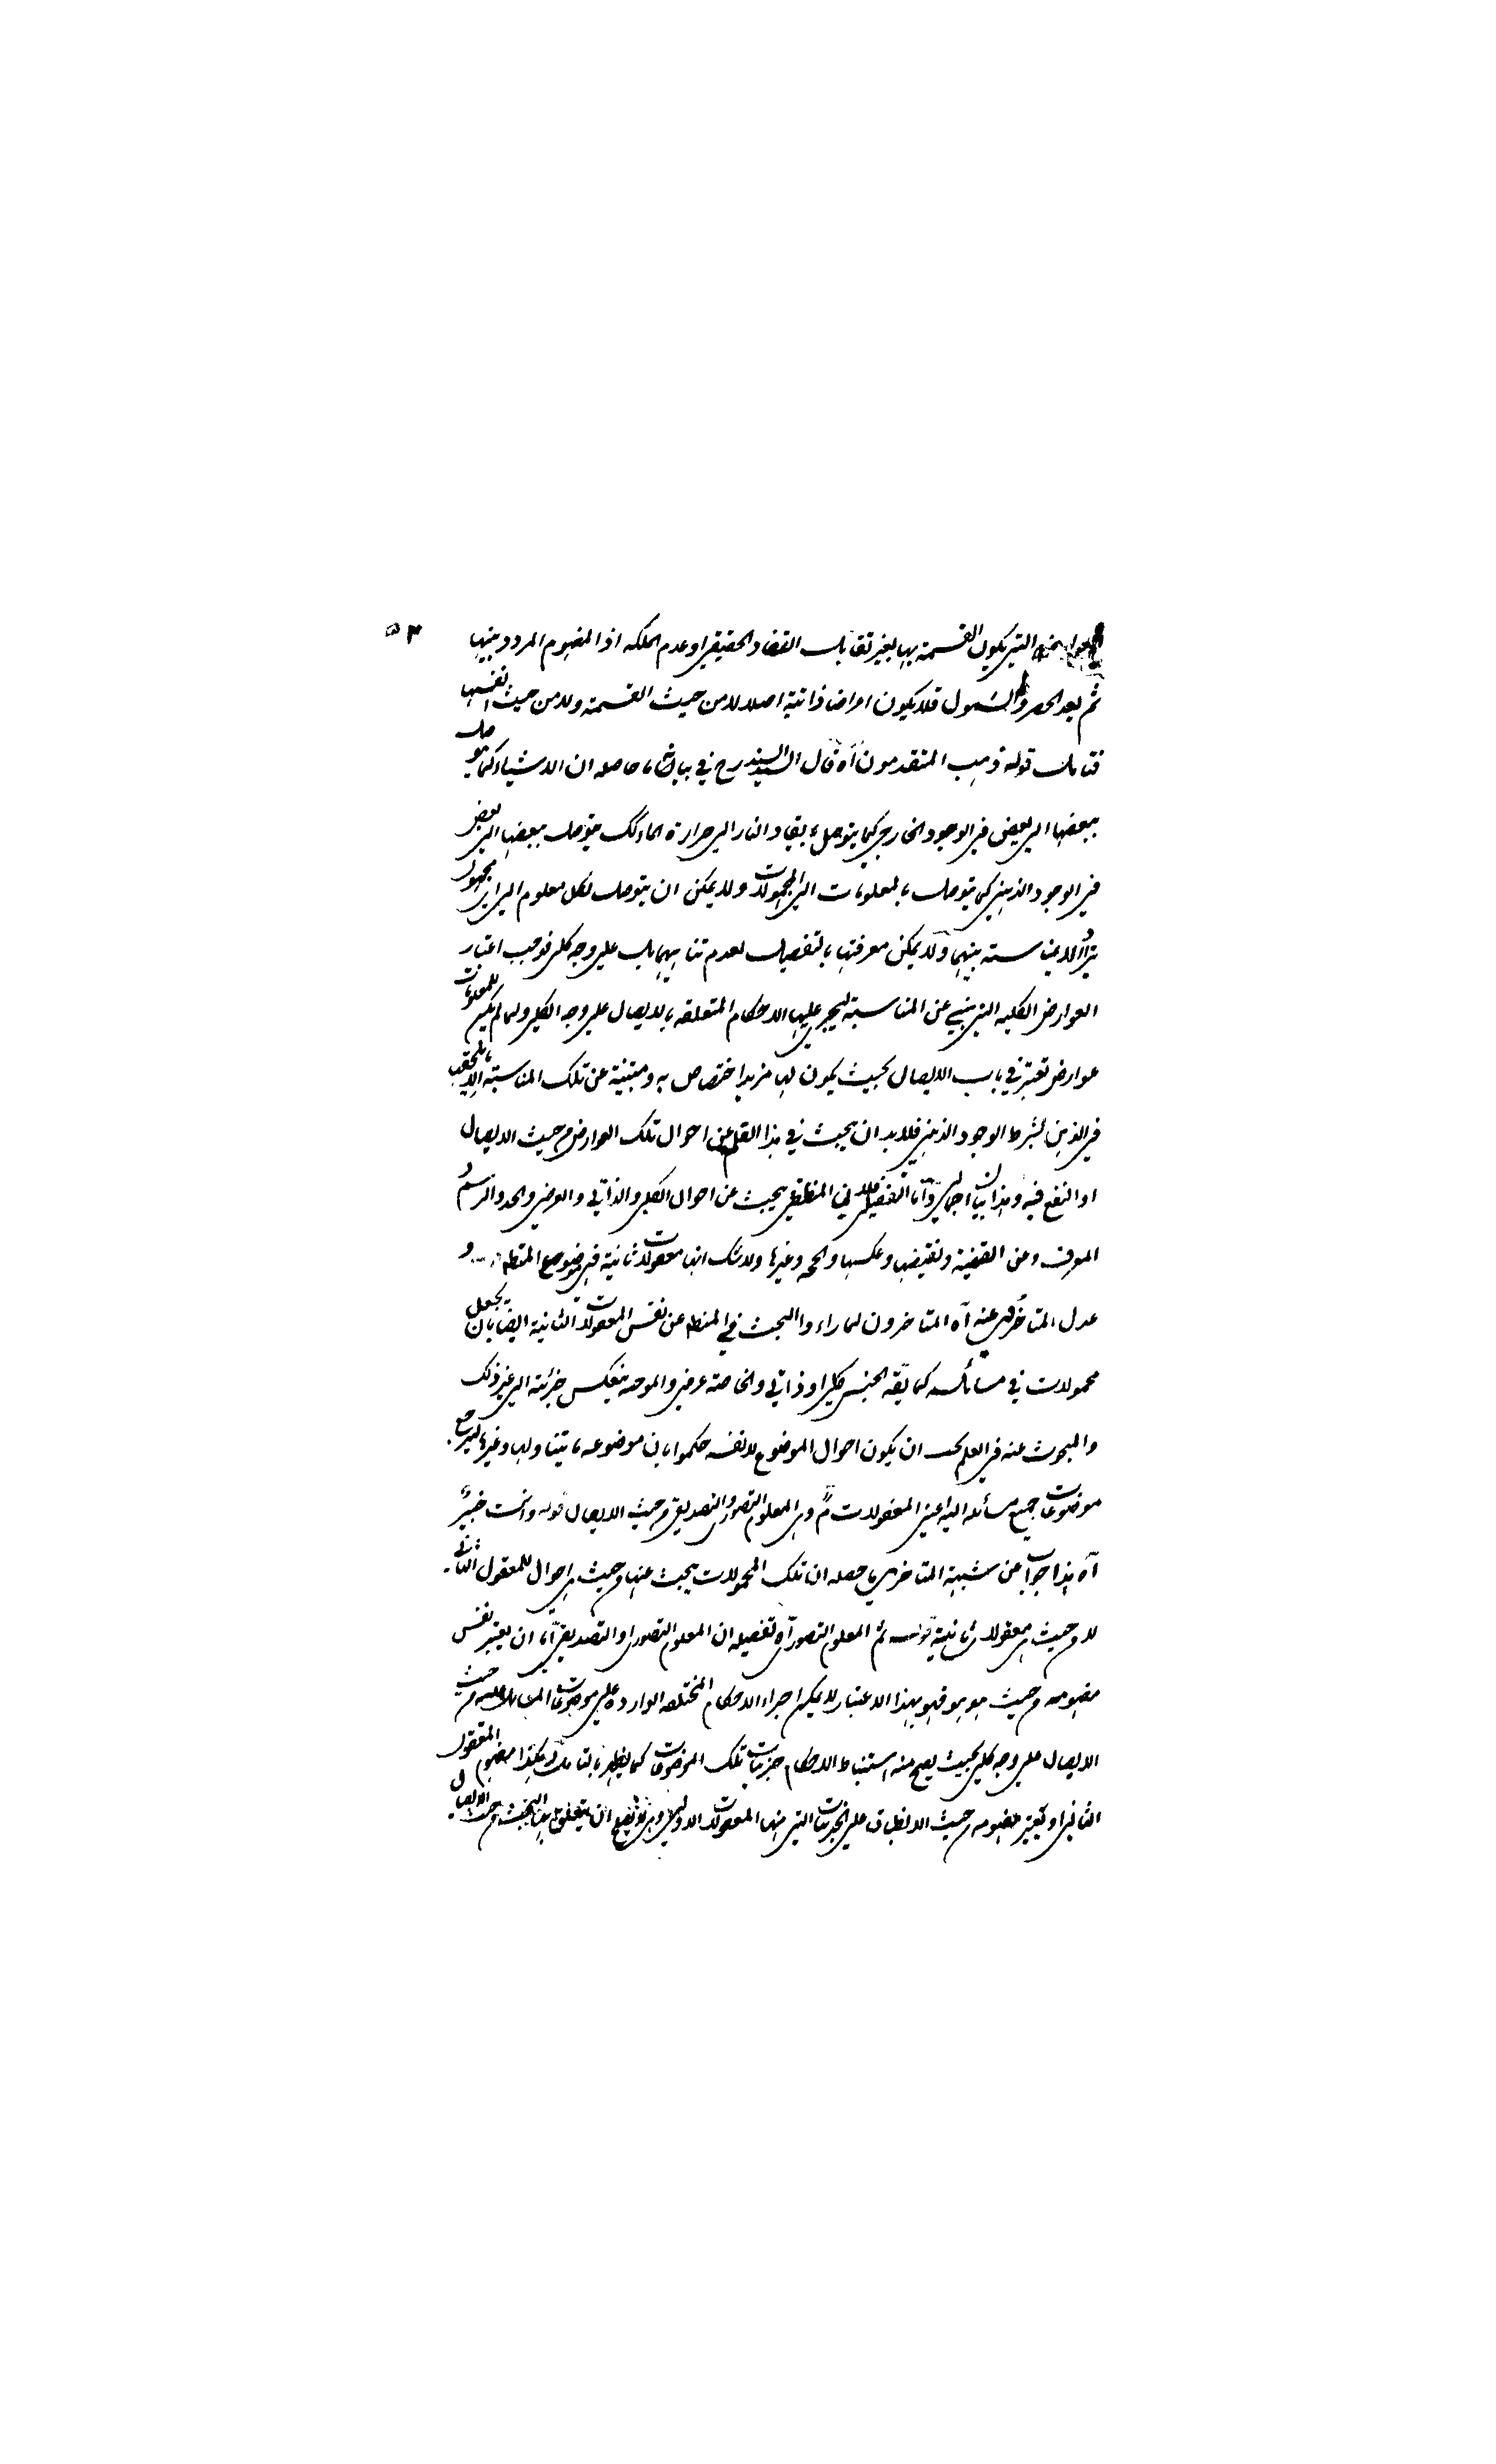 ٥٣
العوارض التي يكون القسمة بها بغير تقابل التضاد الحقيقي او عدم الملكه اذ المفهوم المردد بينها
ثم بعد الحصر والشمول فلا يكون اعراضا ذاتية اصلا لا من حيث القسمة ولا من حيث انفسها
فتامل قوله ذهب المتقدمون آه قال السيد السند رح في حاصله ان الاشياء كما هو صل
ببعضها الى بعض في الوجود الخارجي كما يتوصل بايقاد النار الى حرارة الماء كك يتوصل ببعضها الى بعض
في الوجود الذهني كما يتوصل بالمعلومات الى المجهولات ولا يمكن ان يتوصل لكل معلوم الى اى مجهول
بل لا بد لمناسبة بينهما ولا يمكن معرفتها بالتفصيل لعدم تناهيهما بل على وجه كلى فوجب اعتبار
العوارض الكليه التي ينبئ عن المناسبة ليجرى عليها الاحكام المتعلقه بالايصال على وجه الكلى ولما لم يكن للمعلومات
عوارض تعتبر في باب الايصال بحيث يكون لها مزيد اختصاص به ومنبئة عن تلك المناسبة الا ما يلحقها
في الذهن بشرط الوجود الذهني فلابد ان يبحث في هذا الفن عن احوال تلك العوارض من حيث الايصال
او النفع فيه وهذا بيان اجمالى واما التفصيلى فلان المنطقى يبحث عن احوال الكلى والذاتى والعرضى والحد والرسم و
المعرف وعن القضية ونقيضها وعكسها والحجه وغيرها ولا شك انها معقولات ثانية فهى موضوع المنطق و
عدل المتأخرون عنه آه المتاخرون لما راوا البحث في المنطق عن نفس المعقولات الثانية ايضا بان يجعل
محمولات في مسائله كما يقه الجنس كلى او ذاتي والخاصة عرضى والموجبة ينعكس جزئية الى غير ذلك
والمبحوث عنه في العلم يجب ان يكون احوال الموضوع لا نفسه حكموا بان موضوعه ما يتناولها وغيرها ليرجع
موضوعات جميع مسائله اليه اعنى المعقولات وهى المعلوم التصورى والتصديقى من حيث الايصال قوله وانت خبير
آه هذا جواب عن شبهة المتاخرين حاصله ان تلك المحمولات يبحث عنها من حيث هى احوال للمعقول الثانى
لا من حيث هى معقولات ثانية قوله ثم المعلوم التصورى آه تفصيله ان المعلوم التصورى او التصديقى اما ان يعتبر نفس
مفهومه من حيث هو هو فهو بهذا الاعتبار لا يمكن اجراء الاحكام المختلفه الوارده على موضوعات المسائل عليه من حيث
الايصال على وجه كلى بحيث يصح منه استنباط الاحكام جزئيات تلك الموضوعات كما يظهر بالتامل وهكذا مفهوم المعقول
الثانى او يعتبر مفهومه من حيث الانطباق على الجزئيات التي منها المعقولات الاولى وهو لا يصح ان يتعلق بها البحث من حيث الايصال